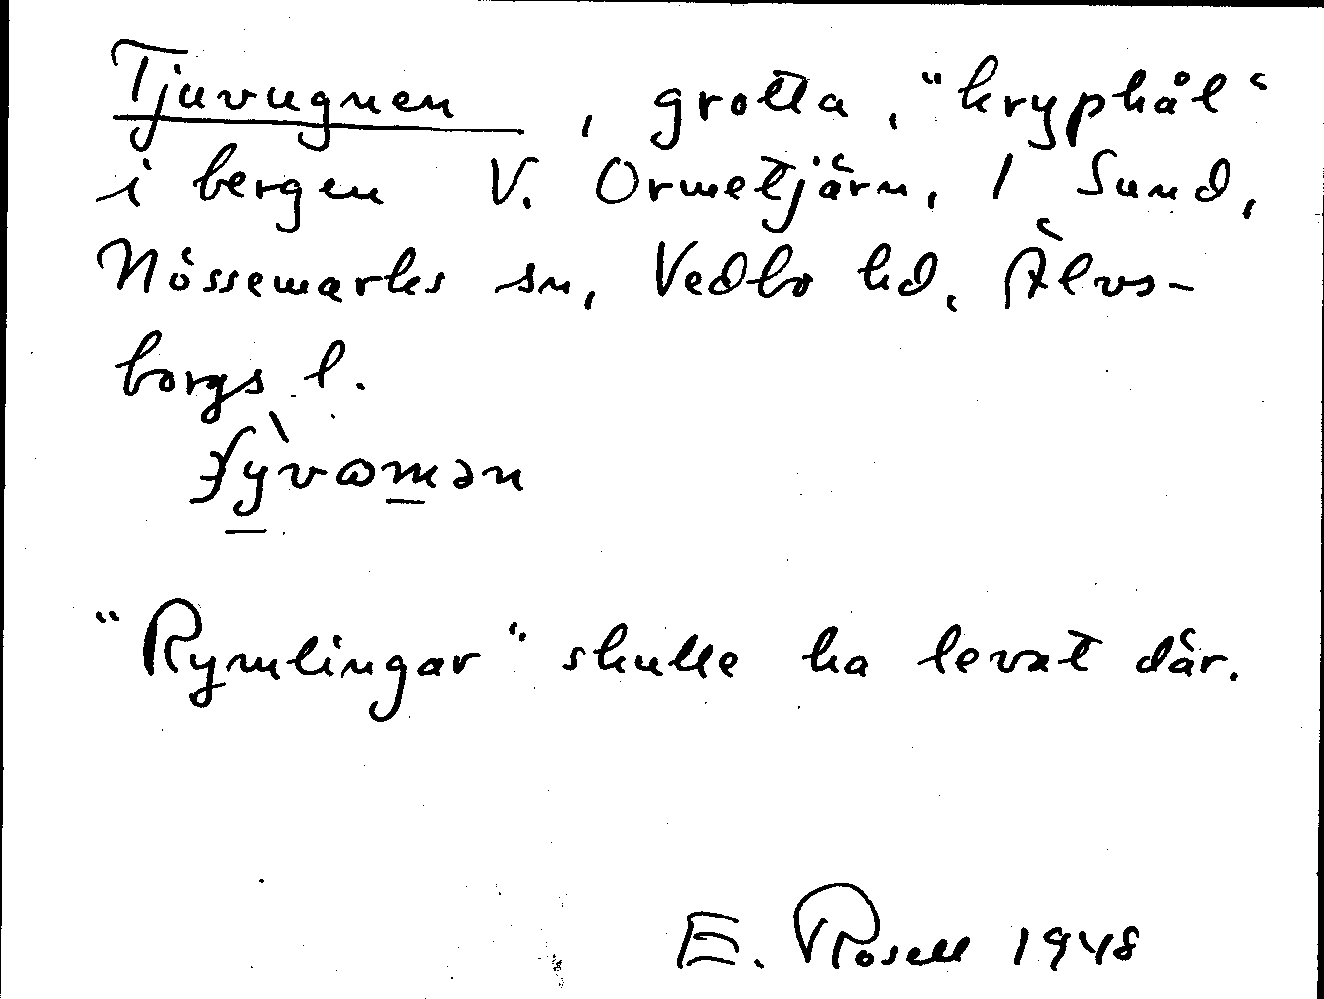 Tjuvugnen, grotta, "kryphål"
i bergen V. Ormetjärn, 1 Sund,
Nössemarks sn, Vedbo hd, Älvs-
borgs l.
"Rymlingar" skulle ha levat där.
E. Rosell 1948